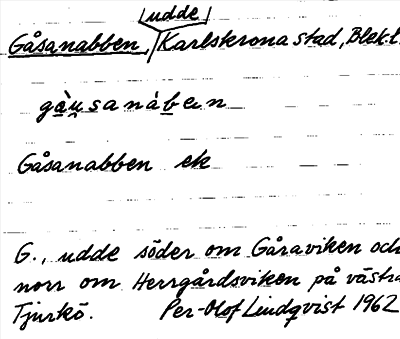 udde
Gåsanabben, Karlskrona stad, Blek.l.
gàu̯sanàben
Gåsanabben ek
G., udde söder om Gåraviken och
norr om Herrgårdsviken på västra
Tjurkö. Per-Olof Lindqvist 1962